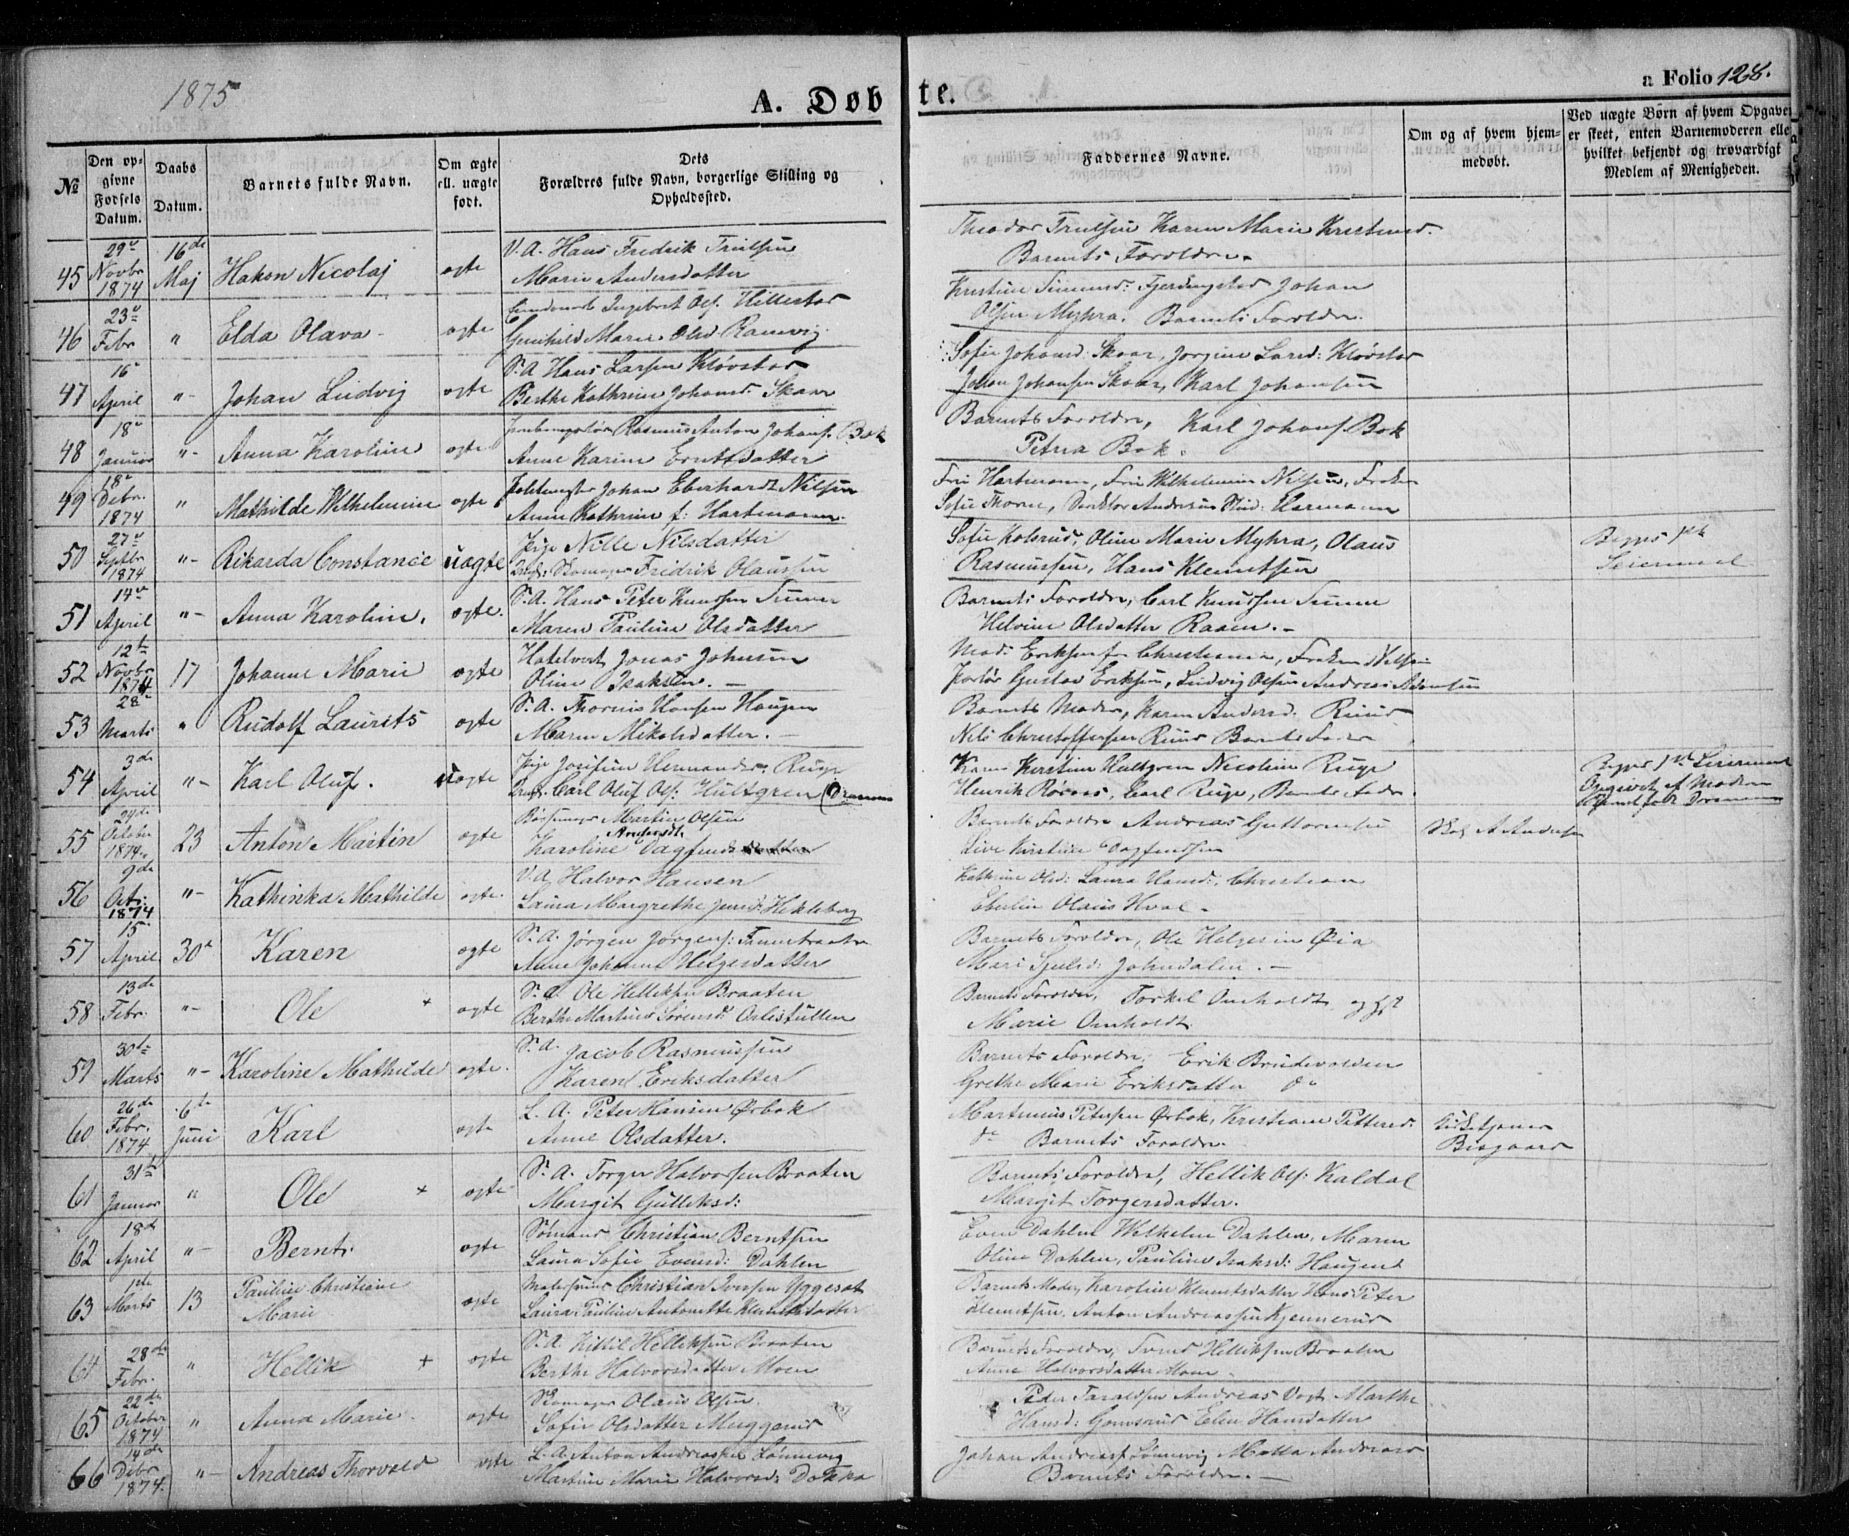 1875
A. Døbte.
a Folio 128.
№
Den opgivne Fødsels Datum.
Daabs Datum.
Barnets fulde Navn.
Om ægte ell. uægte født.
Dets Forældres fulde Navn, borgerlige Stilling og Opholdssted.
Faddernes Navne.
Om og af hvem hjemmedøbt.
Ved uægte Børn af hvem Opgaven er skeet, enten Barnemoderen eller hvilket bekjendt og troværdigt Medlem af Menigheden.
45 29 Novbr 1874 16de Maj Hakon Nicolaj ægte
V. A. Hans Fredrik Trulsen
Marie Andersdatter
Theodor Trulsen Karen Marie Kristensd.
Barnets Forældre.
46 23 Febr " Elda Olava ægte
Ingebret Ols. Hillestad
Gunhild Marie Olsd Ramvig
Kristine Simensd: Fjerdingstad Johan
Olsen Myhra. Barnets Forældre.
47 16 April " Johan Ludvig ægte
S. A. Hans Larsen Kløvstad
Berthe Kathrine Johansd. Skaar
Sofie Johansd Skaar, Jørgine Larsd: Kløvstad
Johan Johansen Skaar, Karl Johansen
48 18 Januar " Anna Karoline ægte
Rasmus Anton Johans. Bok
Anne Karine Berntsdatter
Barnets Forældre, Karl Johans. Bok
Petria Bok.
49 18 Debr. 1874 " Mathilde Wilhelmine ægte
Johan Eberhardt Nilsen
Anne Kathrine f: Hartmann.
Fru Hartmann, Fru Wilhelmine Nilsen, Frøken
Sofie Thorne, Direktør Andersen Stud: Harmann
50 27 Septbr 1874 " Rikarda Constance uægte
Pige Nille Nilsdatter
Skomager Fredrik Olaussen
Sofie Kolsrud, Oline Marie Myhra, Olaus
Rasmussen, Hans Klemetsen
Begges 1ste
Leiermaal
51 14de April " Anna Karoline. ægte.
S. A. Hans Peter Knudsen
Maren Pauline Olsdatter
Barnets Forældre, Carl Knudsen
Helvine Olsdatter Raaen.
52 12te Novbr 1874 17 Johanne Marie ægte
Hotelvert Jonas Johnsen
Oline Isaksen.
Mad: Eriksen fra Christiania, Frøken Nilsen
Gustav Eriksen, Ludvig Olsen Andreas Adamsen
53 28 Marts " Rudolf Laurits ægte
S. A. Thorius Hansen Haugen
Maren Mikelsdatter.
Barnets Moder, Karen Andersd. Ruud
Nils Christoffersen Ruud Barnets Fader
54 3de April " Karl Oluf. uægte
Pige Josefine Hermandsd. Ruge
Carl Oluf Ols: Hultgren (Drammen
Karen Kirstine Hultgren Nicoline Ruge
Henrik Røraas, Carl Ruge, Barnets Fader
Begges 1ste Leiermaal
Opgivet af Moderen
Barnet født Drammen
55 29de October 1874. 23 Anton Martin ægte
Bøssemager Martin Olsen
Karoline Dagfinds
Barnets Forældre Andreas Guttormsen
Live Kirstine Dagfindsen
A. Andersen
56 9de Octr: 1874 " Kathinka Mathilde ægte
V. A. Halvor Hansen
Laura Margrethe Jensd: Hekleberg
Kathrine Olsd: Laura Hansd:, Christian
Olaus Hval
57 15 April 30te Karen ægte
S. A. Jørgen Jørgens:
Anne Johanne Helgesdatter
Barnets Forældre, Ole Helgesen Øia
Mari Johndalen.
58 13de Febr. " Ole + ægte
S. A. Ole Helliksen Braaten
Berthe Martine Sørensd:
Barnets Forældre, Torkel Omholdt og
Marie Omholdt
59 30te Marts " Karoline Mathilde ægte.
S. A. Jacob Rasmussen
Karen Eriksdatter
Barnets Forældre, Erik Brudevolden
Grethe Marie Eriksdatter do
60 26de Febr. 1874 6te Juni Karl ægte
L. A. Peter Hansen Ørbok
Anne Olsdatter.
Martinus Petersen Ørbok, Kristiane Pettersd:
do Barnets Forældre.
Kirketjener
Bisgaard
61 31te Januar " Ole + ægte
S. A. Torger Halvorssen Braaten
Margit Gulliksd:
Barnets Forældre, Hellik Ols: Kaldal
Margit Torgersdatter.
62 18de April " Bernt ægte
Sømand Christian Berntsen
Laura Sofie Evensd: Dahlen
Even Dahlen Wilhelm Dahlen, Maren
Oline Dahlen, Pauline Isaksd: Haugen
63 1ste Marts 13 Pauline Christiane Marie ægte
Christian Iversen Yggeset
Laura Pauline Antonette Klemetsdatter
Barnets Moder, Karoline Klemetsdatter Hans Peter
Klemetsen, Anton Andreassen Kjennerud
64 28de Febr. " Hellik + ægte
S. A. Kittil Helliksen Braaten
Berthe Halvorsdatter Moen
Barnets Forældre, Svend Helliksen Braaten
Anne Halvorsdatter Moen
65 22de October 1874 " Anna Marie ægte
Skomager Olaus Olsen
Sofie Olsdatter Muggerud
Peder Taraldsen Andreas Vogt Marthe
Hansd: Gomsrud Elen Hansdatter
66 14de Debr 1874. " Andreas Thorvald ægte
L. A. Anton Andreassen Lønnevig
Martine Marie Halvorsd: Dokka
Johan Andreass. Lønnevig Andreasd
Barnets Forældre.